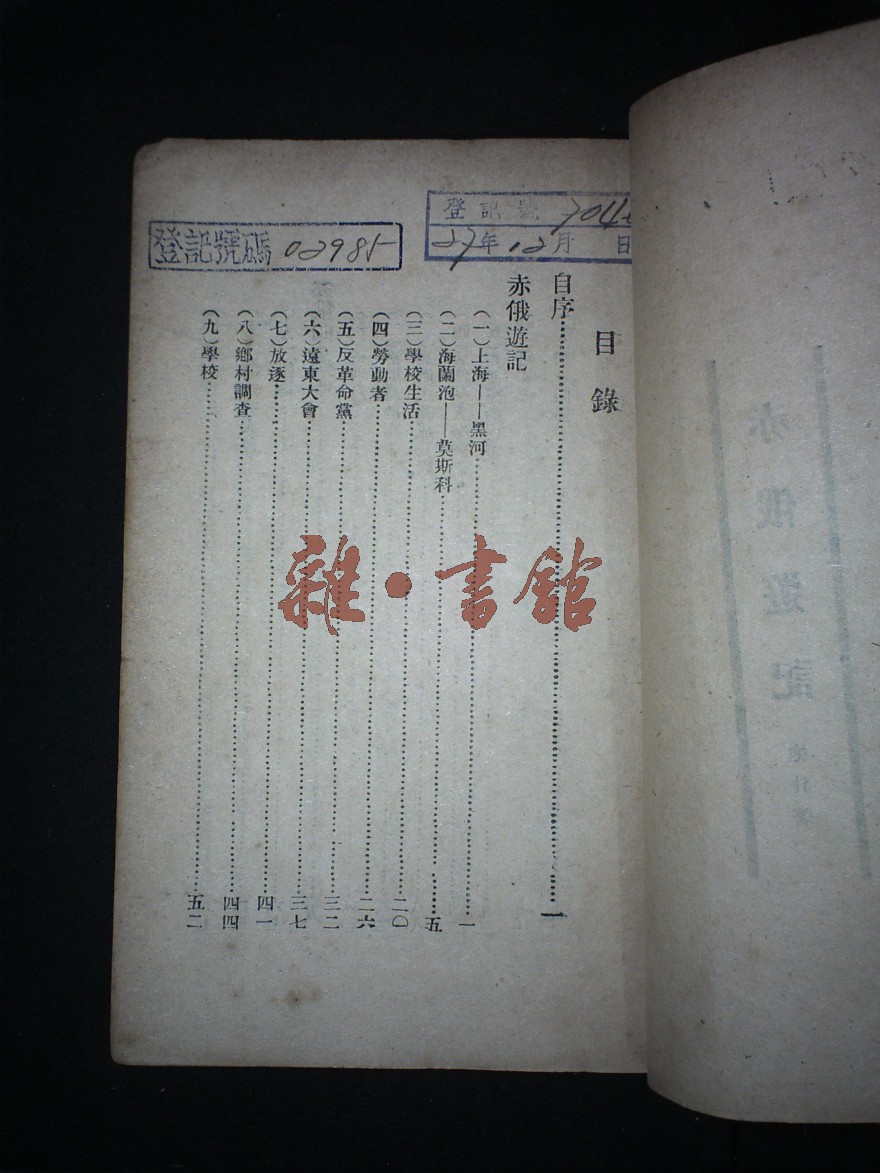 登記號
27年12月 日
登記號碼 02985
目錄
自序……一
赤俄遊記
(一)上海——黑河……一
(二)海蘭泡——莫斯科……五
(三)學校生活……二〇
(四)勞動者……二六
(五)反革命黨……三二
(六)遠東大會……三七
(七)放逐……四一
(八)鄉村調查……四四
(九)學校……五二
雜·書館
赤俄遊記